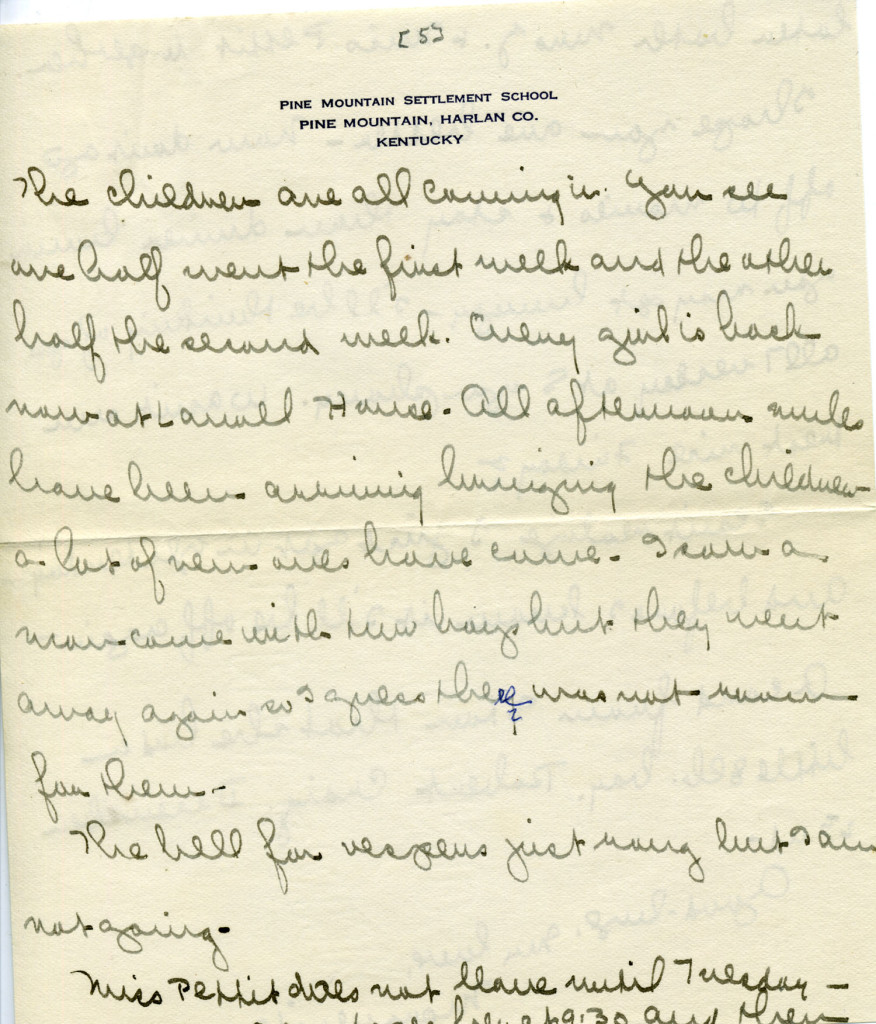 [5]
PINE MOUNTAIN SETTLEMENT SCHOOL
PINE MOUNTAIN, HARLAN CO.
KENTUCKY
The children are all coming in. You see
one half went the first week and the other
half the second week. Every girl is back
now at Laurell House. All afternoon mules
have been arriving bringing the children
a lot of new ones have come. I saw a
man come with two boys but they went
away again so I guess there was not room
?
for them.
The bell for vespers just rang but I am
not going.
Miss Pettit does not leave until Tuesday —
here at 9:30 and then